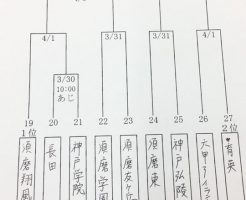 4/1
3/31
3/31
4/1
3/30
10:00
あじ
19
20
21
22
23
24
25
26
27
1位
2位
須磨翔風
長田
神戸学院
須磨学園
須磨友が丘
須磨東
神戸弘陵
六甲アイランド
♥育英